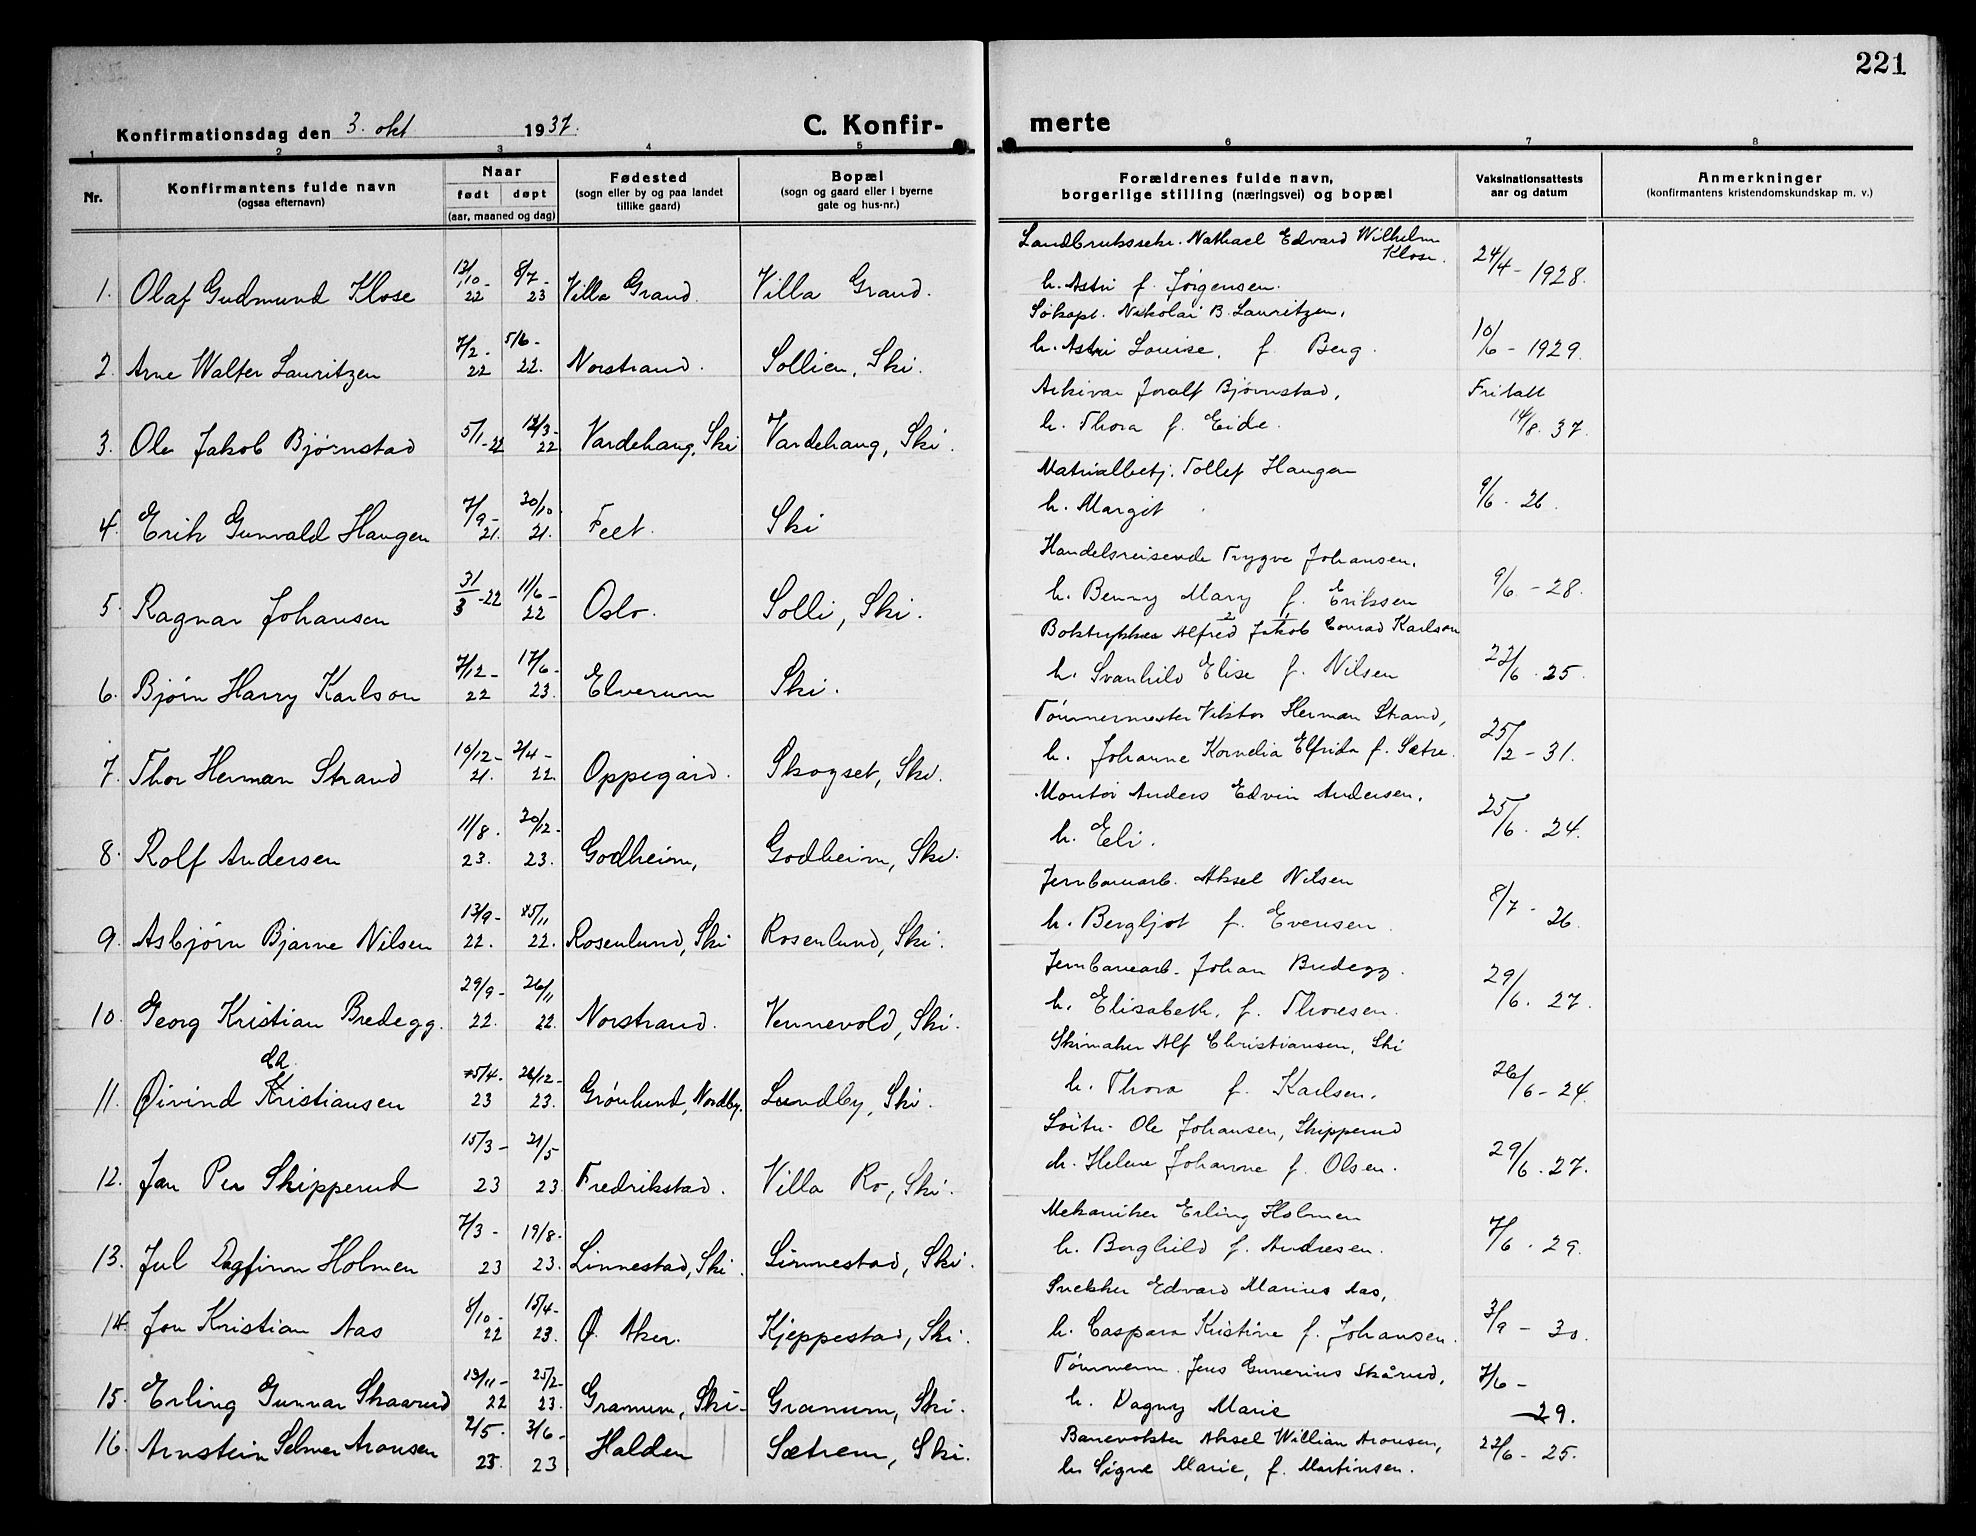 221
Konfirmationsdag den 3. okt 1937.
C. Konfir-
merte
1 2 3 4 5 6 7 8
Nr.
Konfirmantens fulde navn
(ogsaa efternavn)
Naar
født døpt
(aar, maaned og dag)
Fødested
(sogn eller by og paa landet
tillike gaard)
Bopæl
(sogn og gaard eller i byerne
gate og hus-nr.)
Forældrenes fulde navn,
borgerlige stilling (næringsvei) og bopæl
Vaksinationsattests
aar og datum
Anmerkninger
(konfirmantens kristendomskundskap m. v.)
Landbrukssekr. Nathael Edvard Wilhelm
Klose.
1. Olaf Gudmund Klose 13/10-22 8/7-23 Villa Grand. Villa Grand. h. Astri f. Jørgensen. 24/4-1928.
Søkapt. Nikolai B. Lauritzen,
2. Arne Walter Lauritzen 7/2-22 5/6-22. Norstrand. Sollien, Ski. h. Astri Louise, f. Berg. 10/6-1929.
Arkivar Joralf Bjørnstad, Fritatt
3. Ole Jakob Bjørnstad 5/1-22 12/3-22 Vardehaug, Ski Vardehaug, Ski. h. Thora f. Eide. 14/8. 37.
Matrialbetj. Tollef Haugen
4. Erik Gunvald Haugen 7/9-21. 30/10.21. Feet. Ski h. Margit 9/6-26.
Handelsreisende Trygve Johansen,
5. Ragnar Johansen 31/3-22 11/6-22 Oslo. Solli, Ski. h. Benny Mary f. Eriksen 9/6-28.
Boktrykker Alfred Jakob Conrad Karlson
6. Bjørn Harry Karlson 7/12-22 17/6-23. Elverum Ski. h. Svanhild Elise f. Nilsen 22/6.25.
Tømmermester Viktor Herman Strand,
7. Thor Herman Strand 10/12-21. 2/4-22. Oppegård. Skogset, Ski. h. Johanne Kornelia Elfrida f. Sætre. 25/2-31.
Montør Anders Edvin Andersen,
8. Rolf Andersen 11/8.23. 20/12-23. Godheim, Godheim, Ski. h. Eli. 25/6.24.
Jernbanearb. Aksel Nilsen
9. Asbjørn Bjarne Nilsen 13/9-22. 5/11 22. Rosenlund, Ski Rosenlund, Ski. h. Bergljot f. Evensen. 8/7-26.
Jernbanearb. Johan Bredegg.
10. Georg Kristian Bredegg. 29/9-22. 26/11 22. Norstrand. Vennevold, Ski. h. Elisabeth, f. Thoresen. 29/6.27.
Ch
Skimaker Alf Christiansen, Ski
11. Øivind Kristiansen 5/4.23 26/12-23. Grønlund, Nordby. Lundby, Ski. h. Thora f. Karlsen. 26/6-24.
Ole Johansen, Skipperud
12. Jan Per Skipperud 15/3-23 21/5 23 Fredrikstad. Villa Ro, Ski. h. Helene Johanne f. Olsen. 29/6.27.
Mekaniker Erling Holmen
13. Jul Dagfinn Holmen 7/3-23 19/8-23. Linnestad, Ski. Linnestad, Ski. h. Borghild f. Andresen. 7/6.29.
Snekker Edvard Marius Aas,
14. Jon Kristian Aas 8/10-22 15/4-23. Ø. Aker. Kjeppestad, Ski. h. Caspara Kristine f. Johansen. 3/9-30.
Tømmerm. Jens Gunerius Skårud,
15. Erling Gunnar Skaarud 19/11-22 25/2-23. Granum, Ski- Granum, Ski. h. Dagny Marie 7/6-29.
Banevokter Aksel William Aronsen,
16. Arnstein Selmer Aronsen 2/5.23. 3/6-23 Halden Sætrem, Ski. h. Signe Marie, f. Martinsen. 22/6-25.